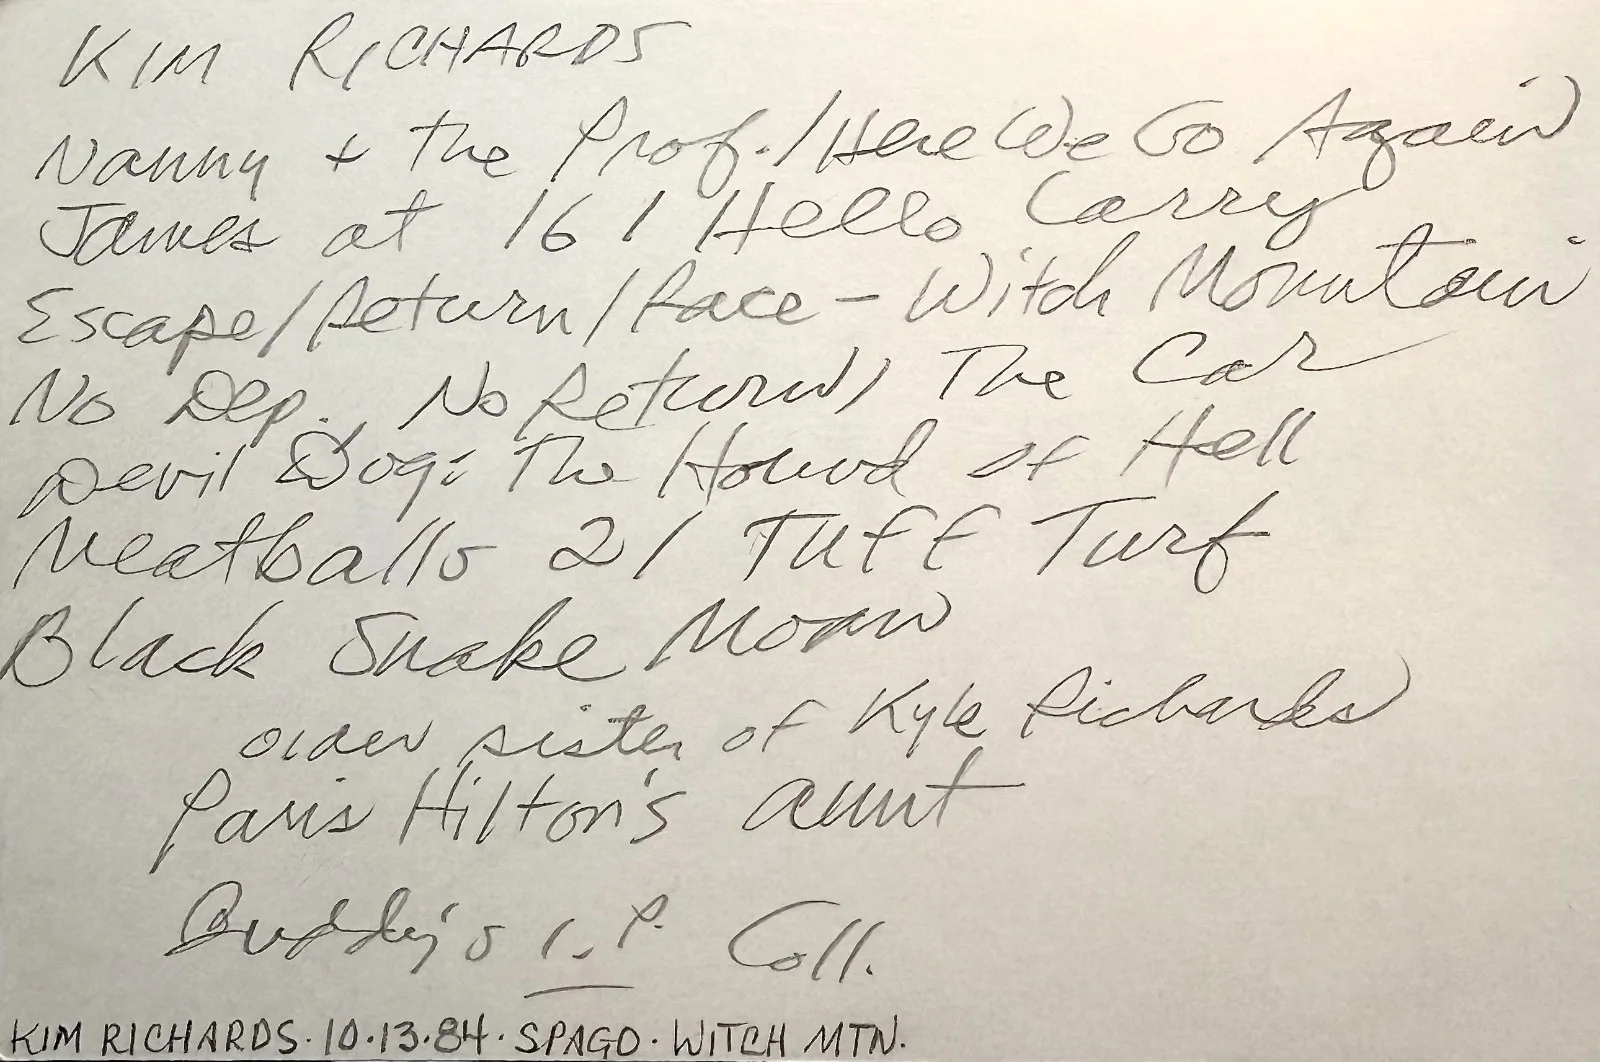 KIM RICHARDS
Nanny + the Prof. / Here We Go Again
James at 16 / Hello Larry
Escape/Return/Race - Witch Mountain
No Dep., No Return / The Car
Devil Dog: The Hound of Hell
Meatballs 2 / TUFF Turf
Black Snake Moan
older sister of Kyle Richards
Paris Hilton's aunt
Buddy's I.P. Coll.
KIM RICHARDS · 10·13·84 · SPAGO · WITCH MTN.